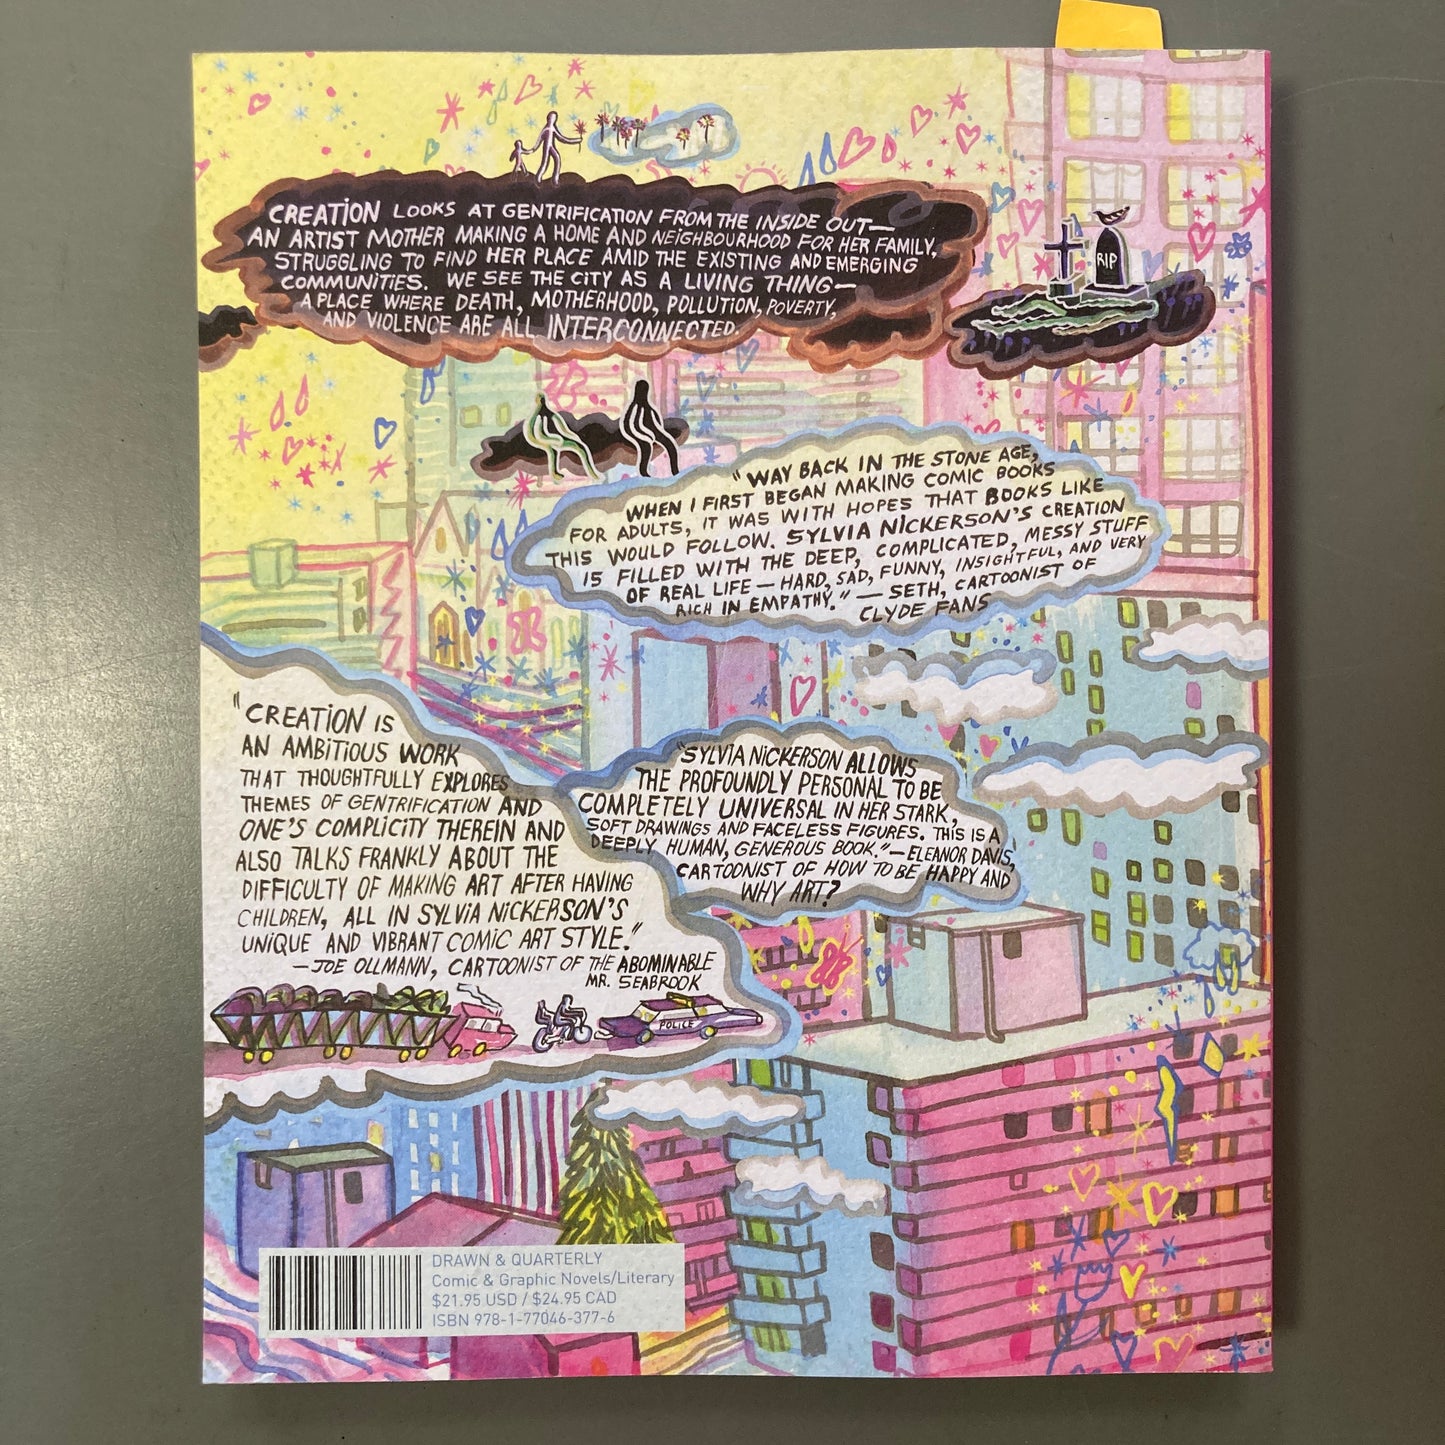 CREATION LOOKS AT GENTRIFICATION FROM THE INSIDE OUT—
AN ARTIST MOTHER MAKING A HOME AND NEIGHBOURHOOD FOR HER FAMILY,
STRUGGLING TO FIND HER PLACE AMID THE EXISTING AND EMERGING
COMMUNITIES. WE SEE THE CITY AS A LIVING THING—
A PLACE WHERE DEATH, MOTHERHOOD, POLLUTION, POVERTY,
AND VIOLENCE ARE ALL INTERCONNECTED.
RIP
"WAY BACK IN THE STONE AGE,
WHEN I FIRST BEGAN MAKING COMIC BOOKS
FOR ADULTS, IT WAS WITH HOPES THAT BOOKS LIKE
THIS WOULD FOLLOW. SYLVIA NICKERSON'S CREATION
IS FILLED WITH THE DEEP, COMPLICATED, MESSY STUFF
OF REAL LIFE—HARD, SAD, FUNNY, INSIGHTFUL, AND VERY
RICH IN EMPATHY."—SETH, CARTOONIST OF
CLYDE FANS
"CREATION IS
AN AMBITIOUS WORK
THAT THOUGHTFULLY EXPLORES
THEMES OF GENTRIFICATION AND
ONE'S COMPLICITY THEREIN AND
ALSO TALKS FRANKLY ABOUT THE
DIFFICULTY OF MAKING ART AFTER HAVING
CHILDREN, ALL IN SYLVIA NICKERSON'S
UNIQUE AND VIBRANT COMIC ART STYLE."
—JOE OLLMANN, CARTOONIST OF THE ABOMINABLE
MR. SEABROOK
"SYLVIA NICKERSON ALLOWS
THE PROFOUNDLY PERSONAL TO BE
COMPLETELY UNIVERSAL IN HER STARK,
SOFT DRAWINGS AND FACELESS FIGURES. THIS IS A
DEEPLY HUMAN, GENEROUS BOOK."—ELEANOR DAVIS,
CARTOONIST OF HOW TO BE HAPPY AND
WHY ART?
POLICE
DRAWN & QUARTERLY
Comic & Graphic Novels/Literary
$21.95 USD / $24.95 CAD
ISBN 978-1-77046-377-6